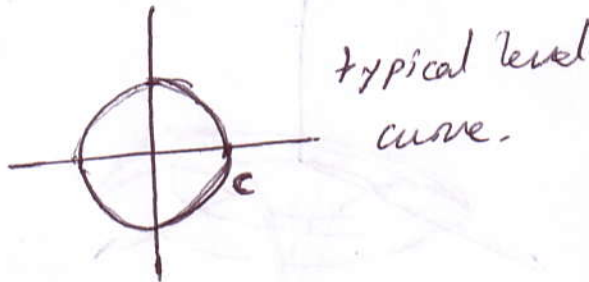 typical level
curve.
c